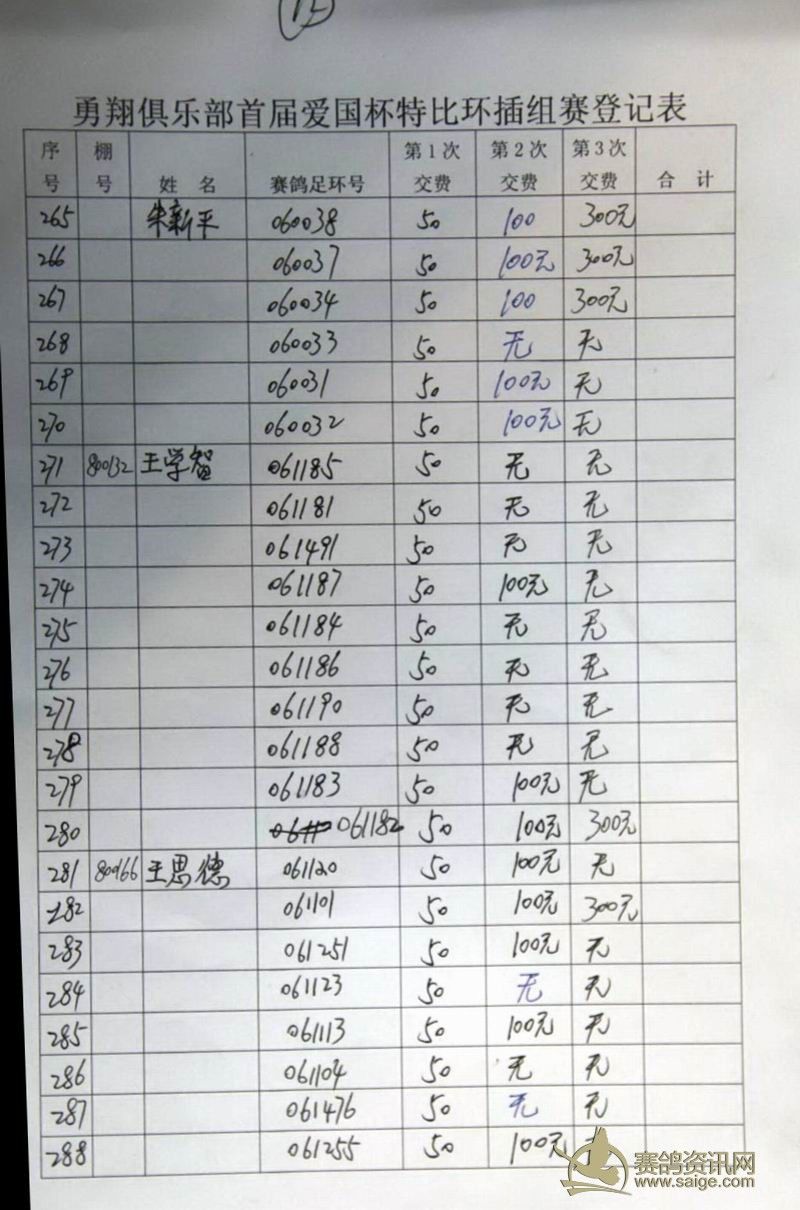 12
勇翔俱乐部首届爱国杯特比环插组赛登记表
序号 棚号 姓 名 赛鸽足环号 第1次交费 第2次交费 第3次交费 合 计
265 朱新平 060038 50 100 300元
266 060037 50 100元 300元
267 060034 50 100 300元
268 060033 50 无 无
269 060031 50 100元 无
270 060032 50 100元 无
271 800132 王学智 061185 50 无 无
272 061181 50 无 无
273 061491 50 无 无
274 061187 50 100元 无
275 061184 50 无 无
276 061186 50 无 无
277 061190 50 无 无
278 061188 50 无 无
279 061183 50 100元 无
280 061182 50 100元 300元
281 800166 王思德 061120 50 100元 无
282 061101 50 100元 300元
283 061251 50 100元 无
284 061123 50 无 无
285 061113 50 100元 无
286 061104 50 无 无
287 061476 50 无 无
288 061255 50 100元
赛鸽资讯网
www.saige.com